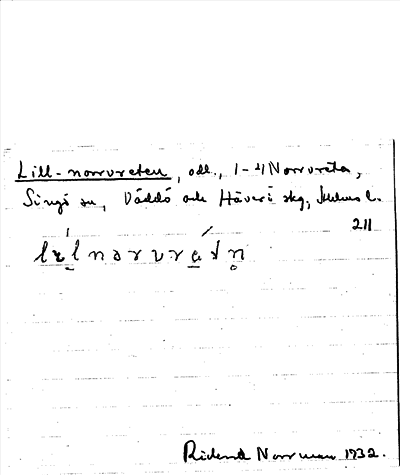 Lill-norrvreten, odl., 1-4 Norrvreta,
Singö sn, Väddö och Häverö skg, Sthlms l.
211
Rickard Norrman 1932.